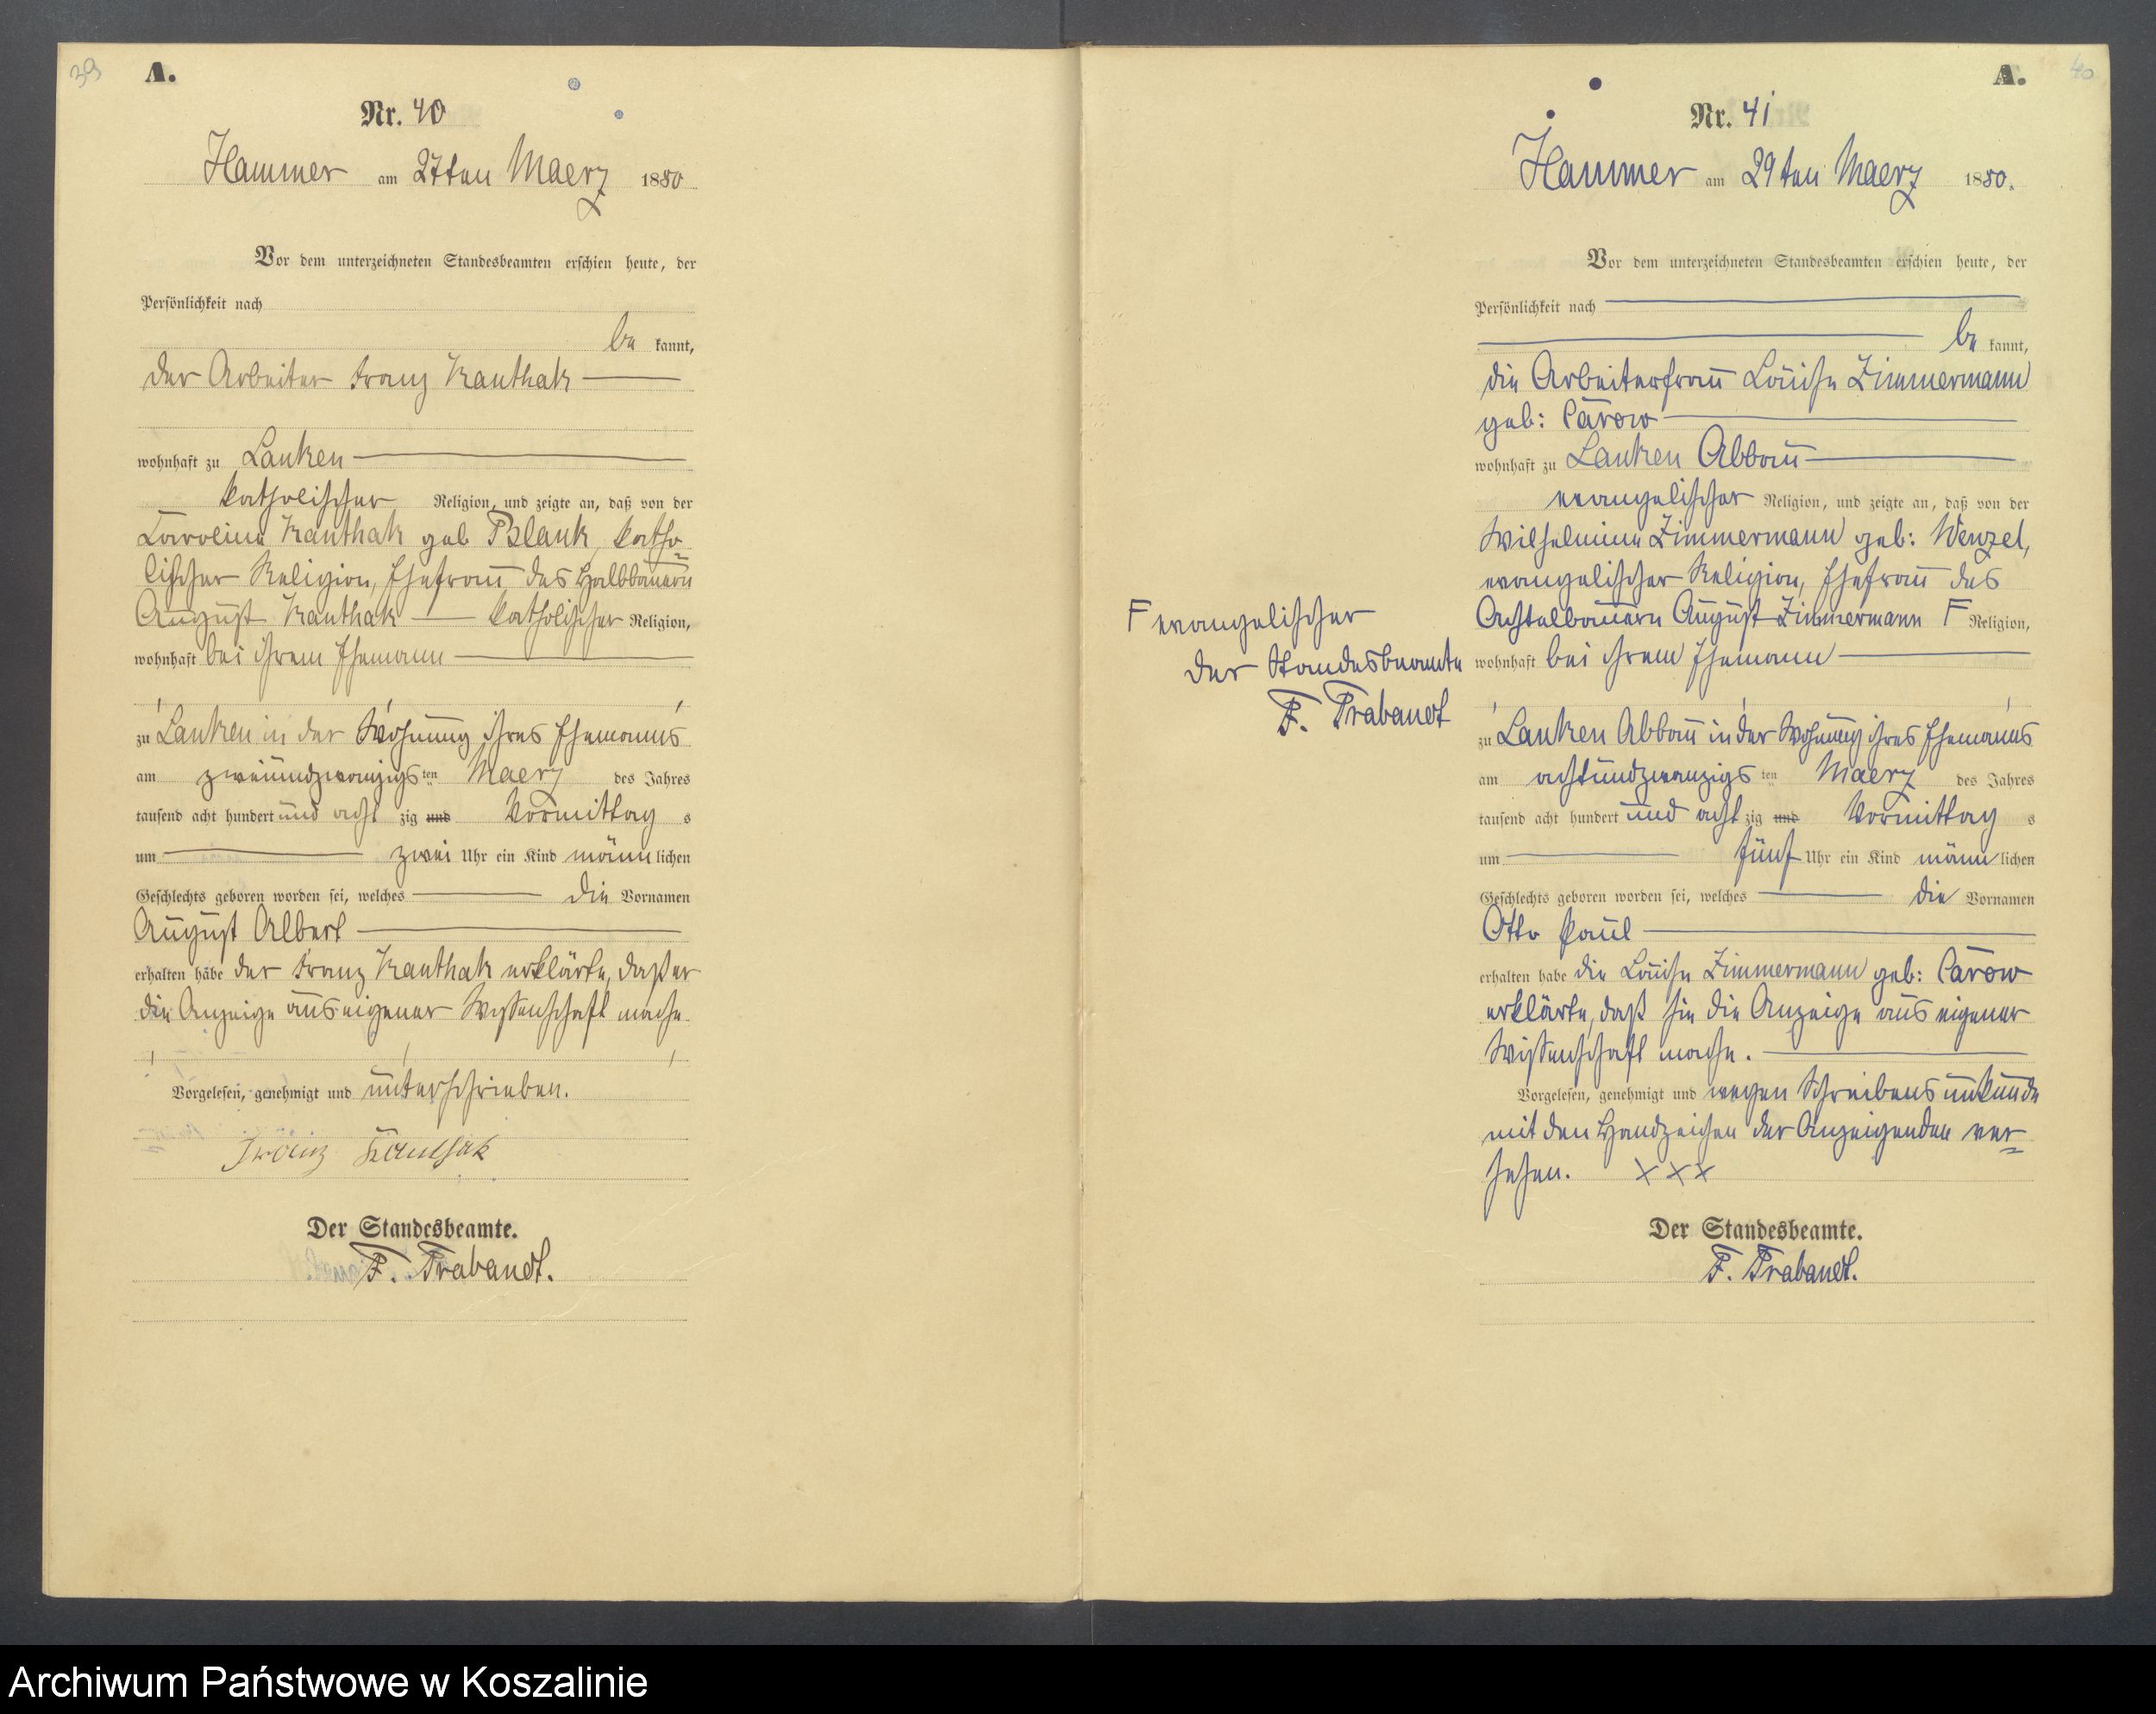 39
A.
Nr. 40
Hammer am 27ten Maerz 1880
Vor dem unterzeichneten Standesbeamten erschien heute, der
Persönlichkeit nach
be kannt,
der Arbeiter Franz Kanthak
wohnhaft zu Lanken
katholischer Religion, und zeigte an, daß von der
Caroline Kanthak geb Blank, katho
lischer Religion, Ehefrau des Halbbauern
August Kanthak katholischer Religion,
wohnhaft bei ihrem Ehemann
zu Lanken in der Wohnung ihres Ehemanns
am zweiundzwanzigsten Maerz des Jahres
tausend acht hundert und acht zig und Vormittag s
um zwei Uhr ein Kind männlichen
Geschlechts geboren worden sei, welches die Vornamen
August Albert
erhalten habe der Franz Kanthak erklärte, daß er
die Anzeige aus eigener Wissenschaft mache.
Vorgelesen, genehmigt und unterschrieben.
Franz Kanthak
Der Standesbeamte.
F. Trabandt.
40
A.
Nr. 41
Hammer am 29ten Maerz 1880.
Vor dem unterzeichneten Standesbeamten erschien heute, der
Persönlichkeit nach
be kannt,
die Arbeiterfrau Louise Zimmermann
geb: Carow
wohnhaft zu Lanken Abbau
evangelischer Religion, und zeigte an, daß von der
Wilhelmine Zimmermann geb: Wenzel,
evangelischer Religion, Ehefrau des
Achtelbauern August Zimmermann F Religion,
F evangelischer
der Standesbeamte
F. Trabandt
wohnhaft bei ihrem Ehemann
zu Lanken Abbau in der Wohnung ihres Ehemanns
am achtundzwanzigsten Maerz des Jahres
tausend acht hundert und acht zig und Vormittag s
um fünf Uhr ein Kind männlichen
Geschlechts geboren worden sei, welches die Vornamen
Otto Paul
erhalten habe die Louise Zimmermann geb: Carow
erklärte, daß sie die Anzeige aus eigener
Wissenschaft mache.
Vorgelesen, genehmigt und wegen Schreibensunkunde
mit den Handzeichen der Anzeigenden ver=
sehen. XXX
Der Standesbeamte.
F. Trabandt.
Archiwum Państwowe w Koszalinie